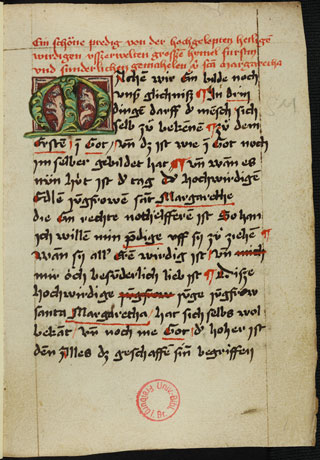 Ein schöne predig von der hochgelopten heilige
wirdigen usserwelten grosse himel fürstin
und sunderlichen gemahelen xp̄i sct margaretha
Machen wir Ein bilde noch
unß glichniß ¶ In drin
dingē darff d' mensch sich
selb zu bekenē ¶ zu dem
Ersten ī Got / vn̄ dz ist wie ī Got noch
im selber gebildet hat ¶ vn̄ wan es
nūn hüt ist d' tag d' hochwirdigen
Edlen jūgfrowē sāt Margarethe
die Ein rechte nothelfferē ist So han
ich willen min p̄dige uff sy zu ziehē ¶
wan sy all' Erē wirdig ist / vn̄ mich
mir öch besūderlich lieb ist ¶ Disze
hochwirdige jūgfrow jūge jūgfröw
santa Margaretha / hat sich selbs wol
bekāt / vn̄ noch me Got / d' hoher ist
den alles dz geschaffē sin begriffen
Univ. Bibl.
Freiburg i. Br.